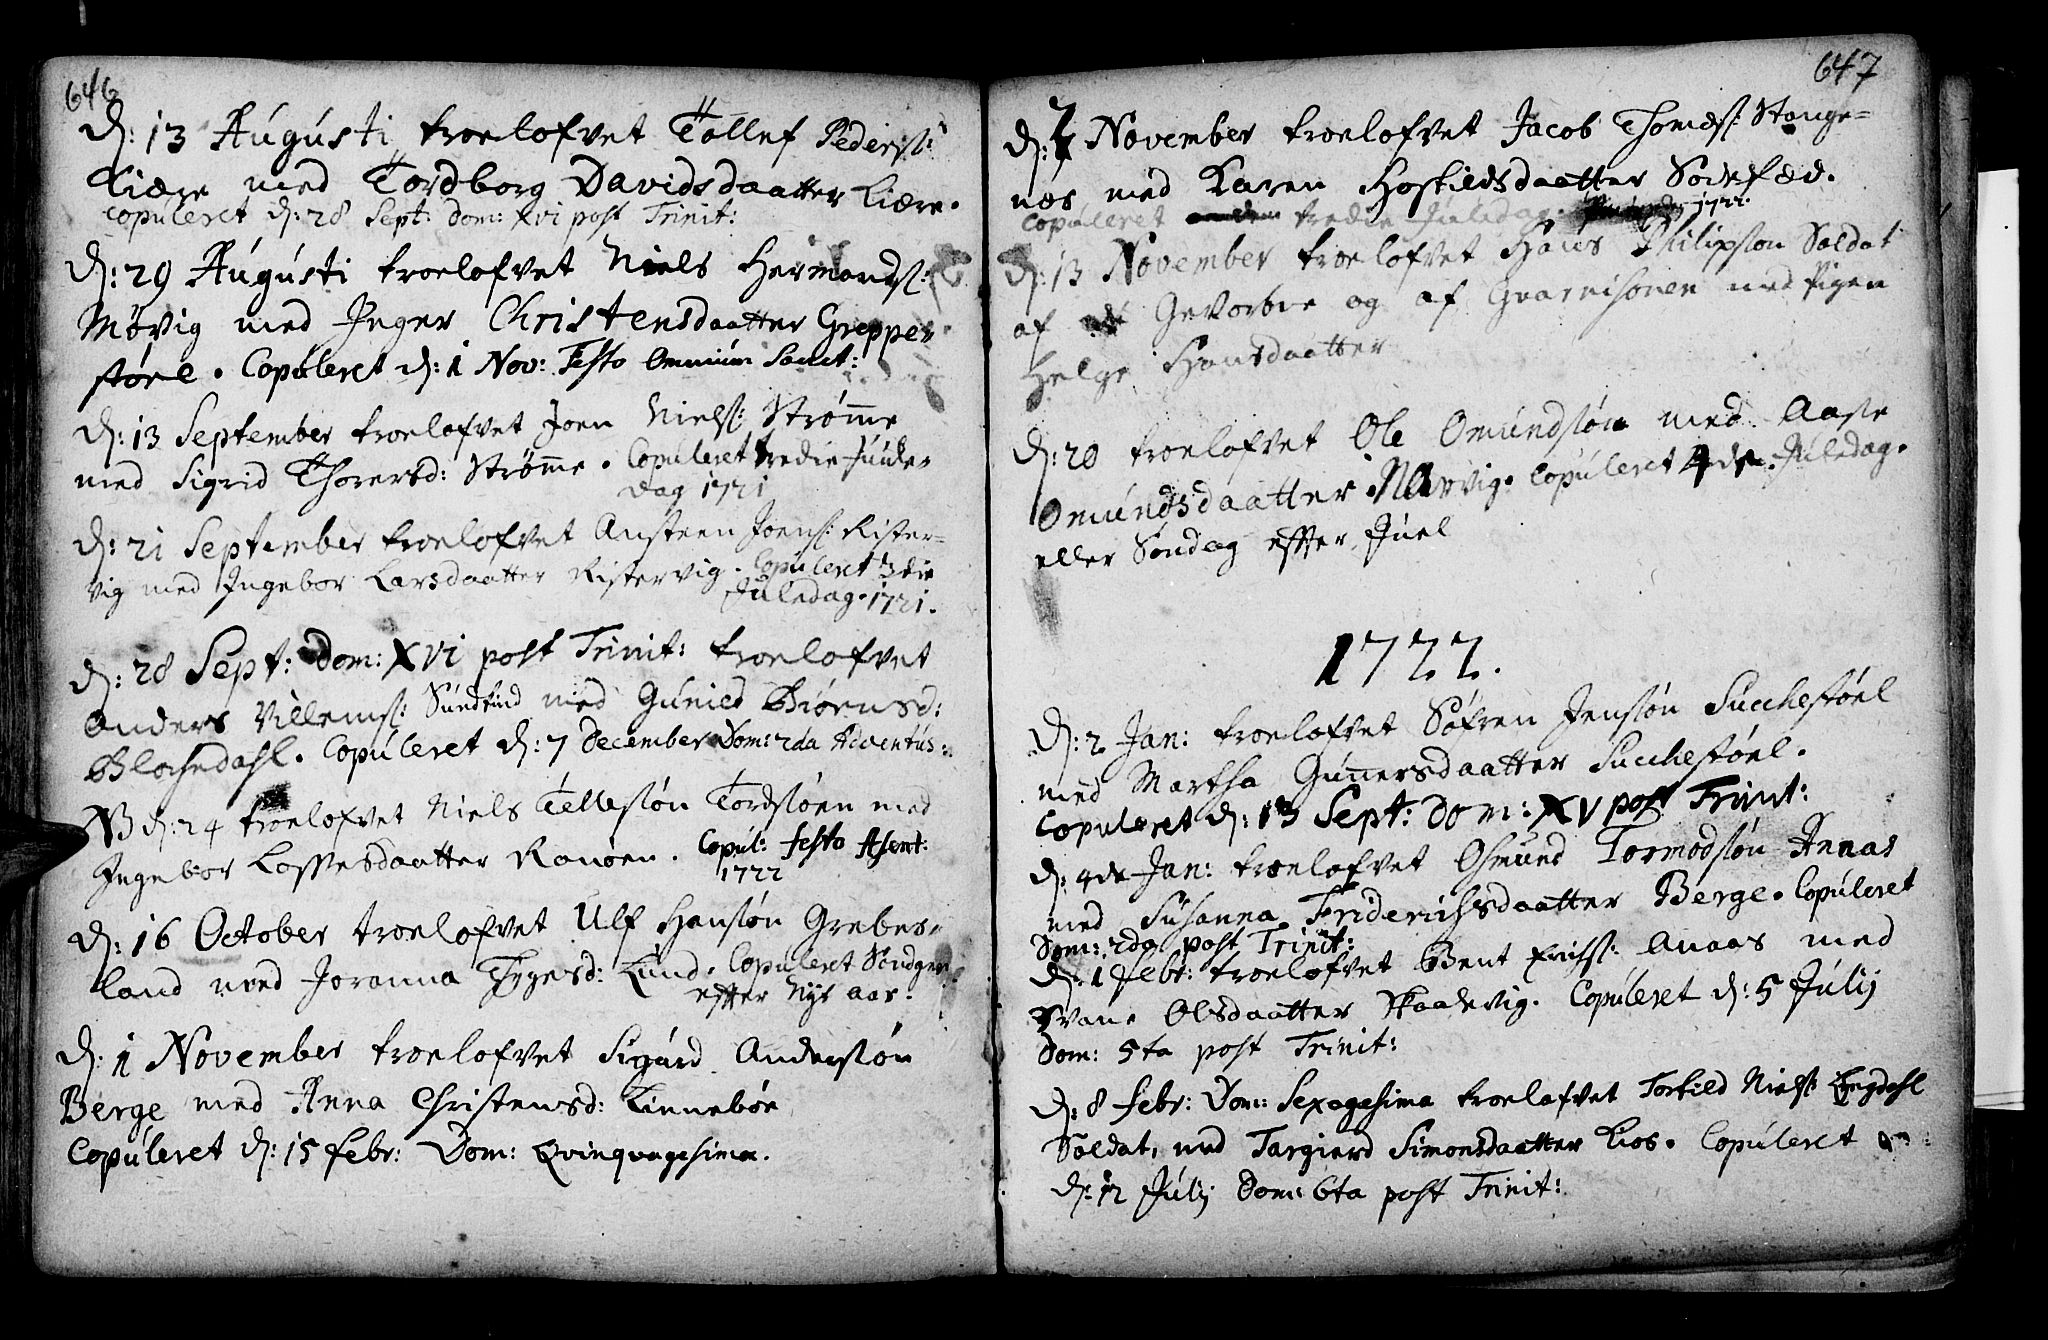 646
d: 13 Augusti troelofvet Tollef Peders:
Kiære med Tordborg Davidsdaatter Kiære.
copuleret d: 28 Sept: Dom: XVI post Trinit:
d: 29 Augusti troelofvet Niels Hermands:
Møvig med Inger Christensdaatter Grepper-
støel. Copuleret d: 1 Nov: Festo Omnium Sanct:
d: 13 September troelofvet Joen Niels: Strøm̃e
med Sigrid Thorersd: Strøm̃e. Copuleret tredie Juule-
dag 1721
d: 21 September troelofvet Ansteen Joens: Rister-
vig med Ingebor Larsdaatter Ristervig. Copuleret 3die
Juledag. 1721.
d: 28 Sept: Dom: XVI post Trinit: troelofvet
Anders Villems: med Gunild Biørnsd:
Blochedahl. Copuleret d: 7 December Dom: 2da Adventus:
NB d: 24 troelofvet Niels Tellesøn Tordsøen med
Ingebor Lassesdaatter Ranøen. Copul: festo Asent:
1722
d: 16 October troelofvet Ulf Hansøn Grebes-
land med Joranna Tygesd: Lund. Copuleret Søndgen
effter Nyt aar.
d: 1 November troelofvet Sigurd Andersøn
Berge med Anna Christensd: Linnebøe
Copuleret d: 15 febr: Dom: Qvinqvagesima.
647
d: 7 November troelofvet Jacob Thomæs: Stange-
næs med Karen Hoskildsdaatter Sodefæd.
copuleret tredie Juledag. 1722.
d: 13 November troelofvet Hans Philipsøn Soldat
af Gevorbne og af Gvarnisonen med Pigen
Helge Hansdaatter
d: 20 troelofvet Ole Omundsøn med Aase
Omundsdaatter Narvig. Copuleret 4de Juledag.
eller Søndag effter Juel
1722.
d: 2 Jan: troelofvet Søfren Jensøn Succhestøel
med Martha Gun̄ersdaatter Succhestøel.
Copuleret d: 13 Sept: Dom: XV post Trinit:
d: 4de Jan: troelofvet Osmund Tormodsøn Annas
med Susanna Friderichsdaatter Berge. Copuleret
Dom: 2da post Trinit:
d: 1 febr: troelofvet Bent Erichs: Anaas med
Svane Olsdaatter Skaadevig. Copuleret d: 5 Julij
Dom: 5ta post Trinit:
d: 8 febr: Dom: Sexagesima troelofvet Torkild Niels: Lyngdahl
Soldat, med Targierd Simonsdaatter Kios. Copuleret
d: 12 Julij Dom: 6ta post Trinit: